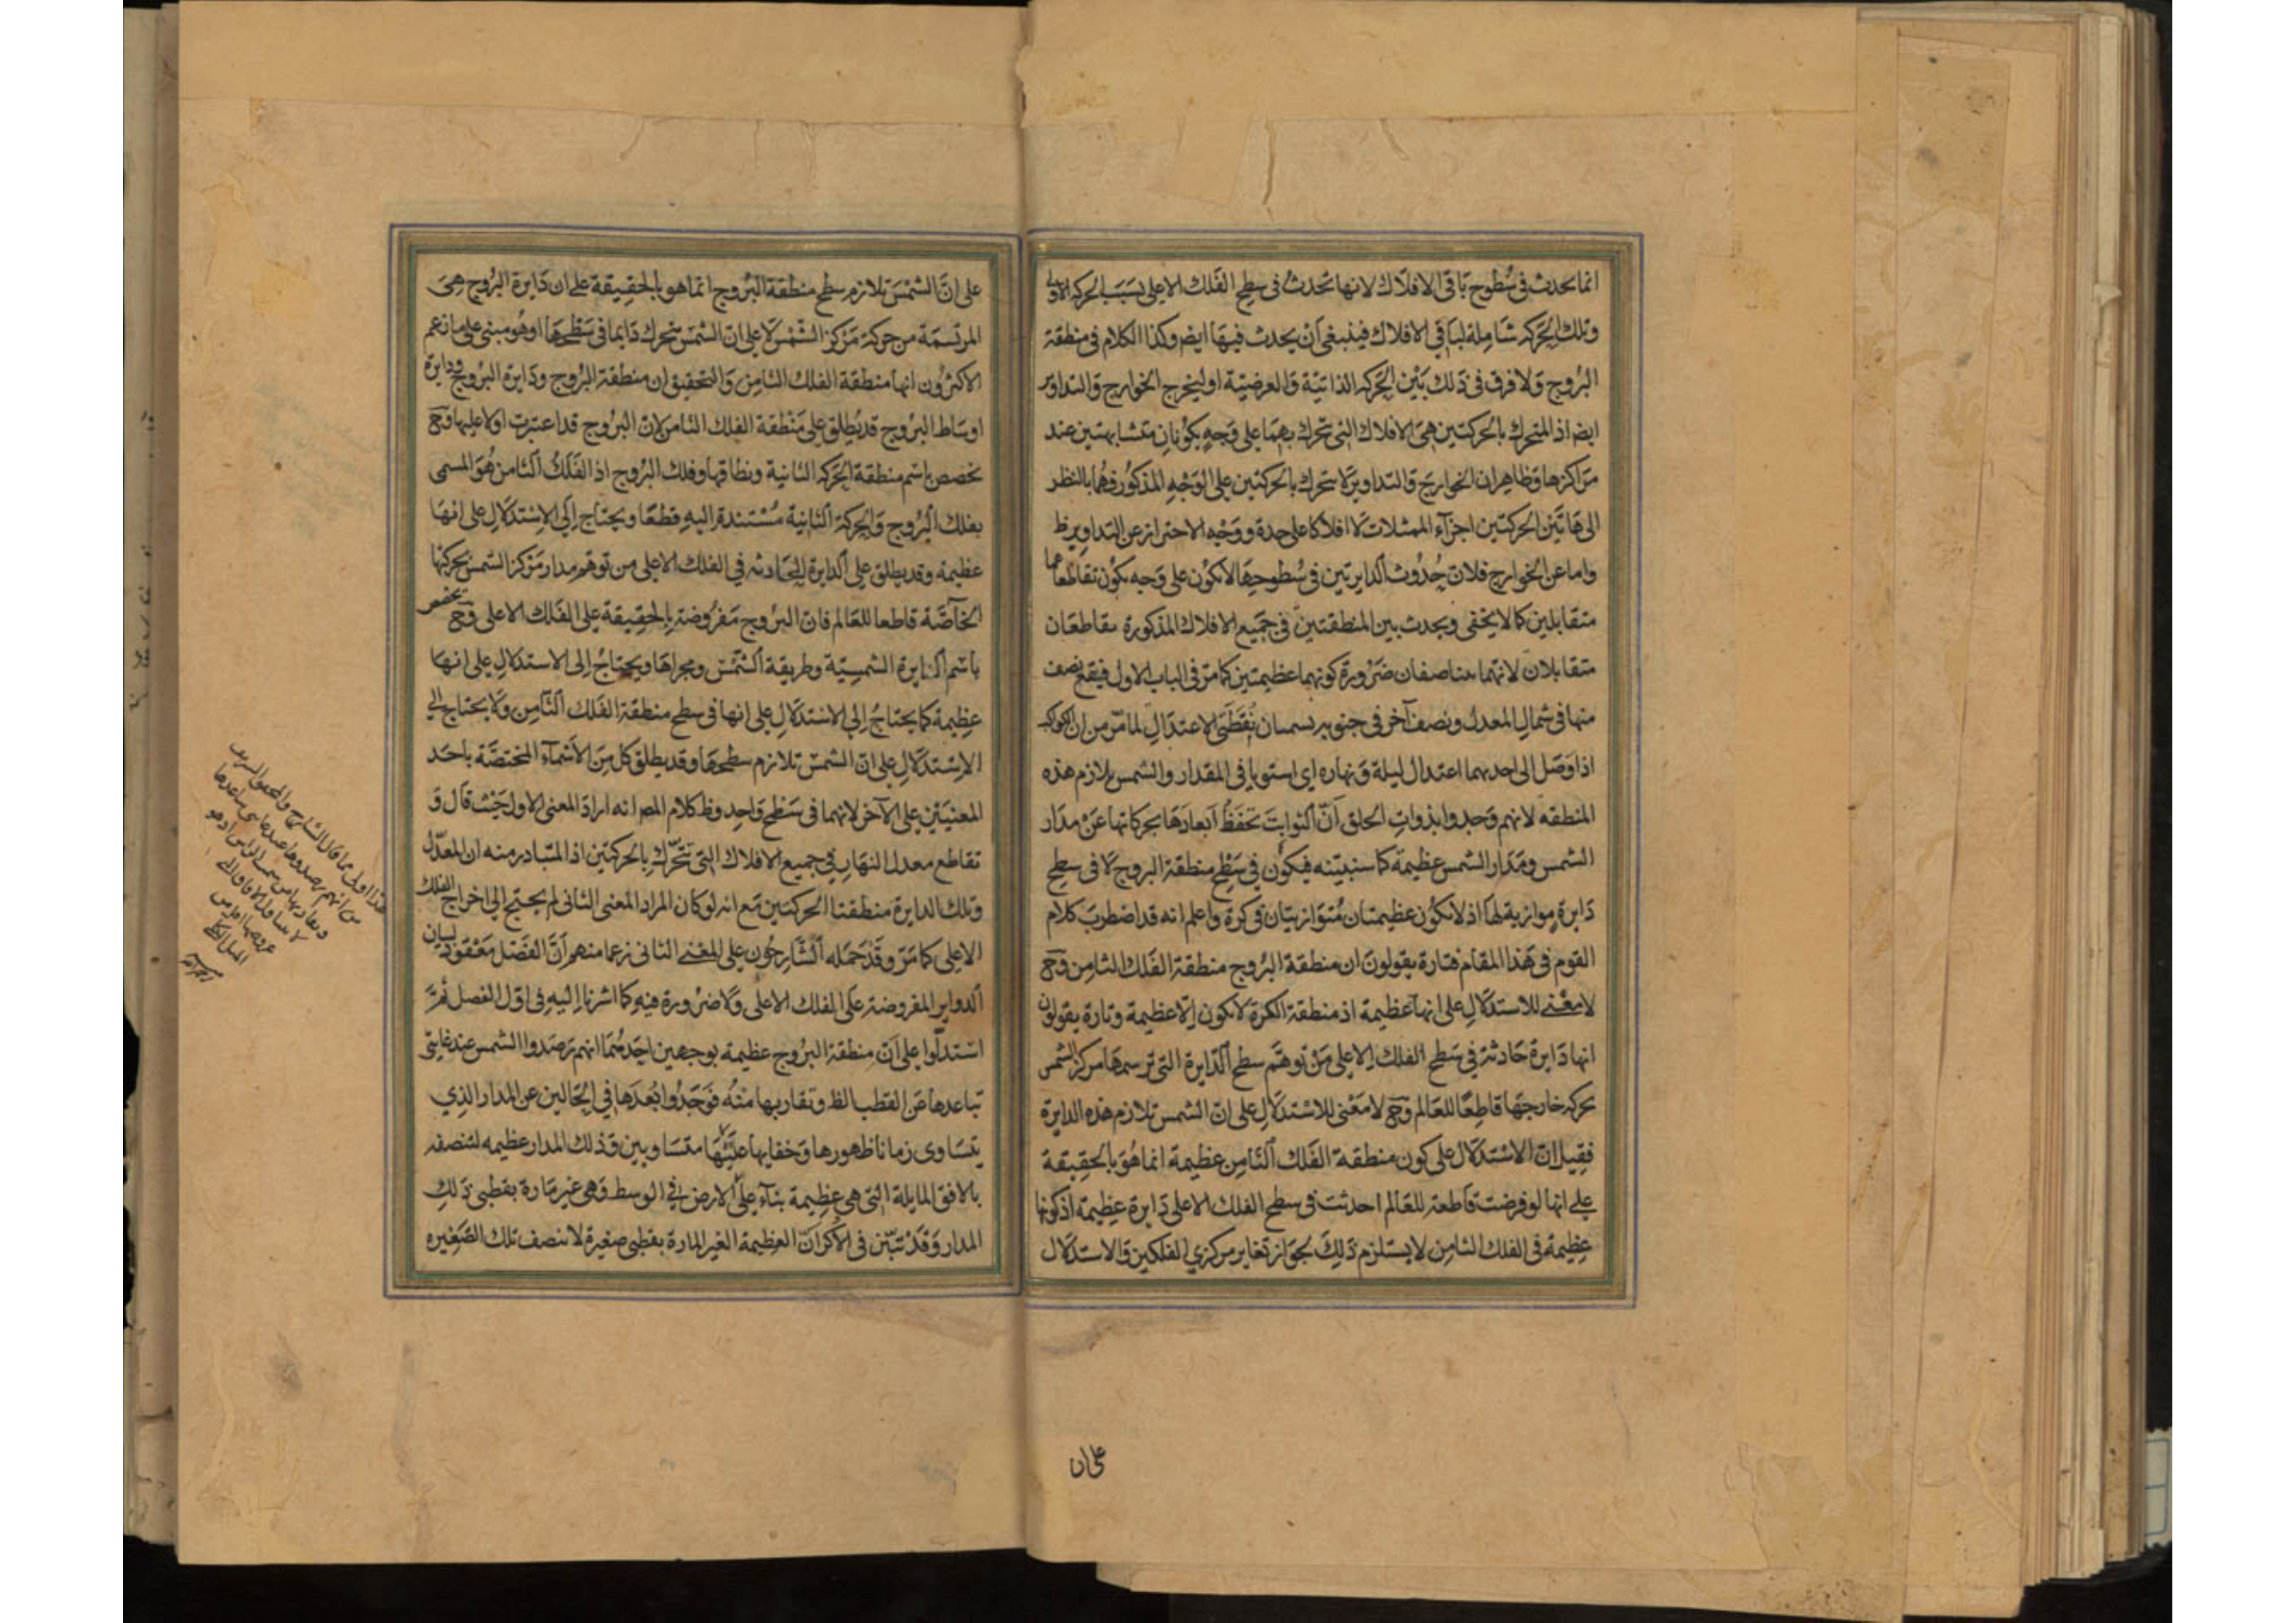 انما تحدث فى سُطوح باقى الافلاك لانها تحدثُ فى سطح الفلك الاعلى بسبب الحركة الاولى
وتلك الحَركة شاملة لباقى الافلاك فينبغى أن يحدث فيها ايضا وكذا الكلام فى منطقة
البُروج وَلا فرق فى ذلك بَيْن الحَركة الذاتيّة وَالعرضيّة او ليخرج الخوارج وَالتداوير
ايضا اذ المتحرك بالحركتين هى الافلاك التى تتحرك بهما على وَجهٍ يكونان متشابهتين عند
مَراكزها وظاهر ان الخوارج وَالتداوير لا تتحرك بالحركتين على الوَجْهِ المذكور فهُما بالنظر
الى هَاتَين الحركتين اجزآء الممثلات لا افلاكا على حدة ووَجْه الاحتراز عن التداوير ظ
واما عن الخوارج فلان حُدُوث الدايرتين فى سُطوحِهَا لا يكون على وَجه يكون تقاطعهما
متقابلين كما لا يخفى ويحدث بين المنطقتين فى جميع الافلاك المذكورة تقاطعَان
متقابلان لانهما يتناصفان ضَرُورة كونهما عظيمتين كما مرّ فى الباب الاول فيقع نصف
منها فى شمال المعدل ونصف آخر فى جنوبه يسميان نُقطتَى الاعتدال لما مرّ من ان الكواكب
اذا وَصَل الى احديهما اعتدال ليلة وَنهاره اى استويا فى المقدار والشمس يلازم هذه
المنطقه لانهم وَجدوا بذواتِ الحلق أنّ الثوابتَ تحفَظُ أبعادَهَا بحركاتها عَنْ مدَار
الشمس وَمَدَار الشمس عظيمة كما سنبيّنه فيكون فى سَطح منطقة البروج لا فى سطح
دَايرة موازية لها اذ لا يكون عظيمتان مُتوازيتان فى كرة واعلم انه قد اضطربَ كلام
القوم فى هذا المقام فتارة يقولونَ ان منطقة البُروج منطقة الفلك الثامن وَحَ
لا مَعْنى للاستدلالِ على انها عظيمة اذ منطقة الكرة لا يكون اِلّا عظيمة وتارة يقولون
انها دَايرة حَادثة فى سَطح الفلك الاعلى مَنْ توهّم سطح الدّايرة التى ترسمها مركز الشمس
بحركة خارجهَا قاطِعًا للعَالم وحَ لا مَعْنى للاسْتدلالِ على انّ الشمس تلازم هذه الدايرة
فقيل انّ الاسْتدلال على كون منطقة الفلك الثامِن عظيمة انما هُوَ بالحقيقة
على انها لو فرضت قاطعة للعَالم احدثت فى سطح الفلك الاعلى دَايرة عظِيمة اذ كونها
عظِيمة فى الفلك الثامِن لا يستلزم ذلِكَ لجوَاز تغاير مركزي الفلكين وَالاستدلال
على ان
على انّ الشمْسَ تلازم سطح منطقة البُروج انما هو بالحقيقة على ان دَايرة البُروج هِىَ
المرتسمَة من حَركة مَرْكز الشّمْس لا على انّ الشمسَ تتحرك دَايما فى سَطْحهَا او هُو مبنى على ما زعم
الاكثرُون انها منطقة الفلك الثامِن وَالتحقيق ان منطقة البُروج ودَايرة البروج ودايرة
اوسَاط البُروج قد يُطلق على مَنْطقة الفلك الثامن لانّ البُروج قد اعتبرت اولا عليها وحَ
تخصص باسم منطقة الحَركة الثانية ونطاقها وفلك البُروج اذ الفَلَكُ الثامن هُوَ المسمى
بفلك البُروج وَالحركة الثانية مُسْتندة اليهِ قطعًا ويحتاج اِلَى الاِسْتدلالِ على انهَا
عظيمة وقد يطلق على الدايرة الحَادثه في الفلك الاعلى من توهم مدار مَرْكز الشمس بحركتها
الخاصّة قاطعا للعَالم فانّ البرُوج مَفرُوضة بالحقِيقة على الفَلك الاعلى وحَ يخصص
باسْم الدايرة الشمسِيّة وطريقة الشمْس ومجراهَا ويحتاجُ الى الاستدلالِ على انهَا
عظِيمة كما يحتاجُ اِلى الاسْتدلالِ على انها فى سطح منطقة الفَلك الثامِن وَلا يحتاج الى
الاِسْتدلالِ على انّ الشمسَ تلازم سطحهَا وقد يطلق كل مِنَ الاسْمآء المختصّة باحَد
المعنيَيْن على الآخر لانهما فى سَطْحٍ وَاحِدٍ وظ كلام المصـ انه ارادَ المعنى الاول حَيْث قال وَ
تقاطع معدل النهار فى جميع الافلاك التى تتحرّك بالحركتين اذ المتبادر منه ان المعدّل
وتلك الدايرة منطقتا الحركتين مَع انه لو كان المراد المعنى الثانى لم يحتج الى اخراج الفلك
الاعلى كما مَرّ وقَدْ حَمَله الشَّارِحُون على المعْنى الثانى زعما منهم أنَّ الفَصْل مَعْقود لبيان
الدواير المفروضة على الفلك الاعلى وَلا ضرُورة فيه كما اشرنا اليه فى اوّل الفصل ثمّ
اسْتدلّوا على اَنّ منطقة البرُوج عظيمة بوجهين احَدهُما انهم رَصَدوا الشمس عند غايتى
تباعدها عَن القطب الظ وتقاربها منْهُ فَوَجَدُوا بُعْدَهَا فى الحَالين عن المدار الذي
يتسَاوى زمانا ظهورها وَخفايها عليهَا متسَاويين وَذلك المدار عظيمه لتنصفه
بالافق المايلة التى هى عظِيمة بنآء على انّ الارض فى الوسط وَهى غير مَارة بقطبى ذلِك
المدار وَقدْ تبيّن فى الاكر انّ العظِيمة الغير المارة بقطبى صغيرة لا تنصف تلك الصّغيره
هذا اولى مما قال الشارح والمحقق الشريف
من انهم رصدوها